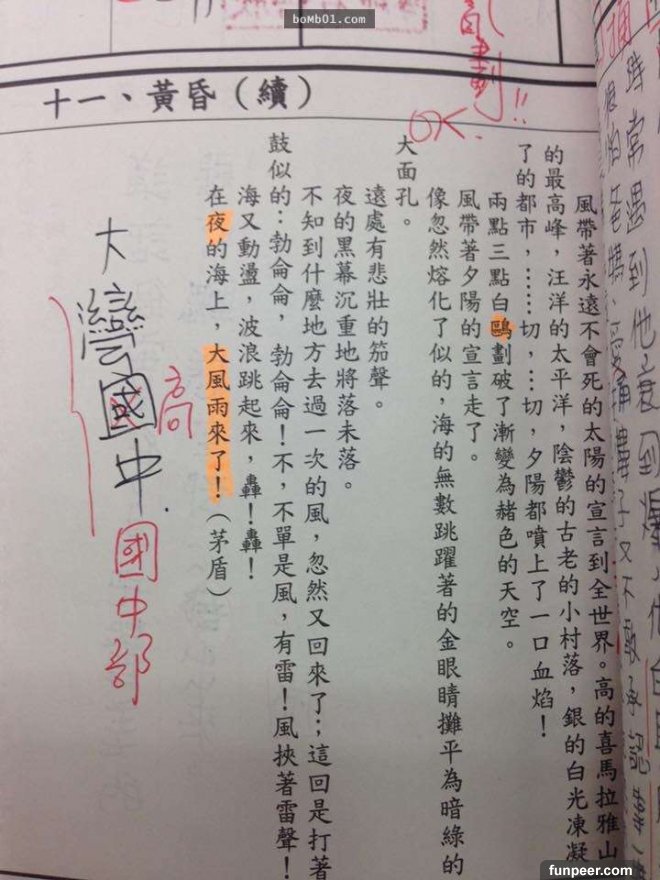 boMb01.com
亂畫到!!
OK.
十一、黃昏（續）
風帶著永遠不會死的太陽的宣言到全世界。高的喜馬拉雅山
的最高峰，汪洋的太平洋，陰鬱的古老的小村落，銀的白光凍凝
了的都市，……切，…切，夕陽都噴上了一口血焰！
兩點三點白鷗劃破了漸變為赭色的天空。
風帶著夕陽的宣言走了。
像忽然熔化了似的，海的無數跳躍著的金眼睛攤平為暗綠的
大面孔。
遠處有悲壯的笳聲。
夜的黑幕沉重地將落未落。
不知到什麼地方去過一次的風，忽然又回來了；這回是打著
鼓似的：勃侖侖，勃侖侖！不，不單是風，有雷！風挾著雷聲！
海又動盪，波浪跳起來，轟！轟！
在夜的海上，大風雨來了！（茅盾）
高
大灣國中.
國中部
funpeer.com